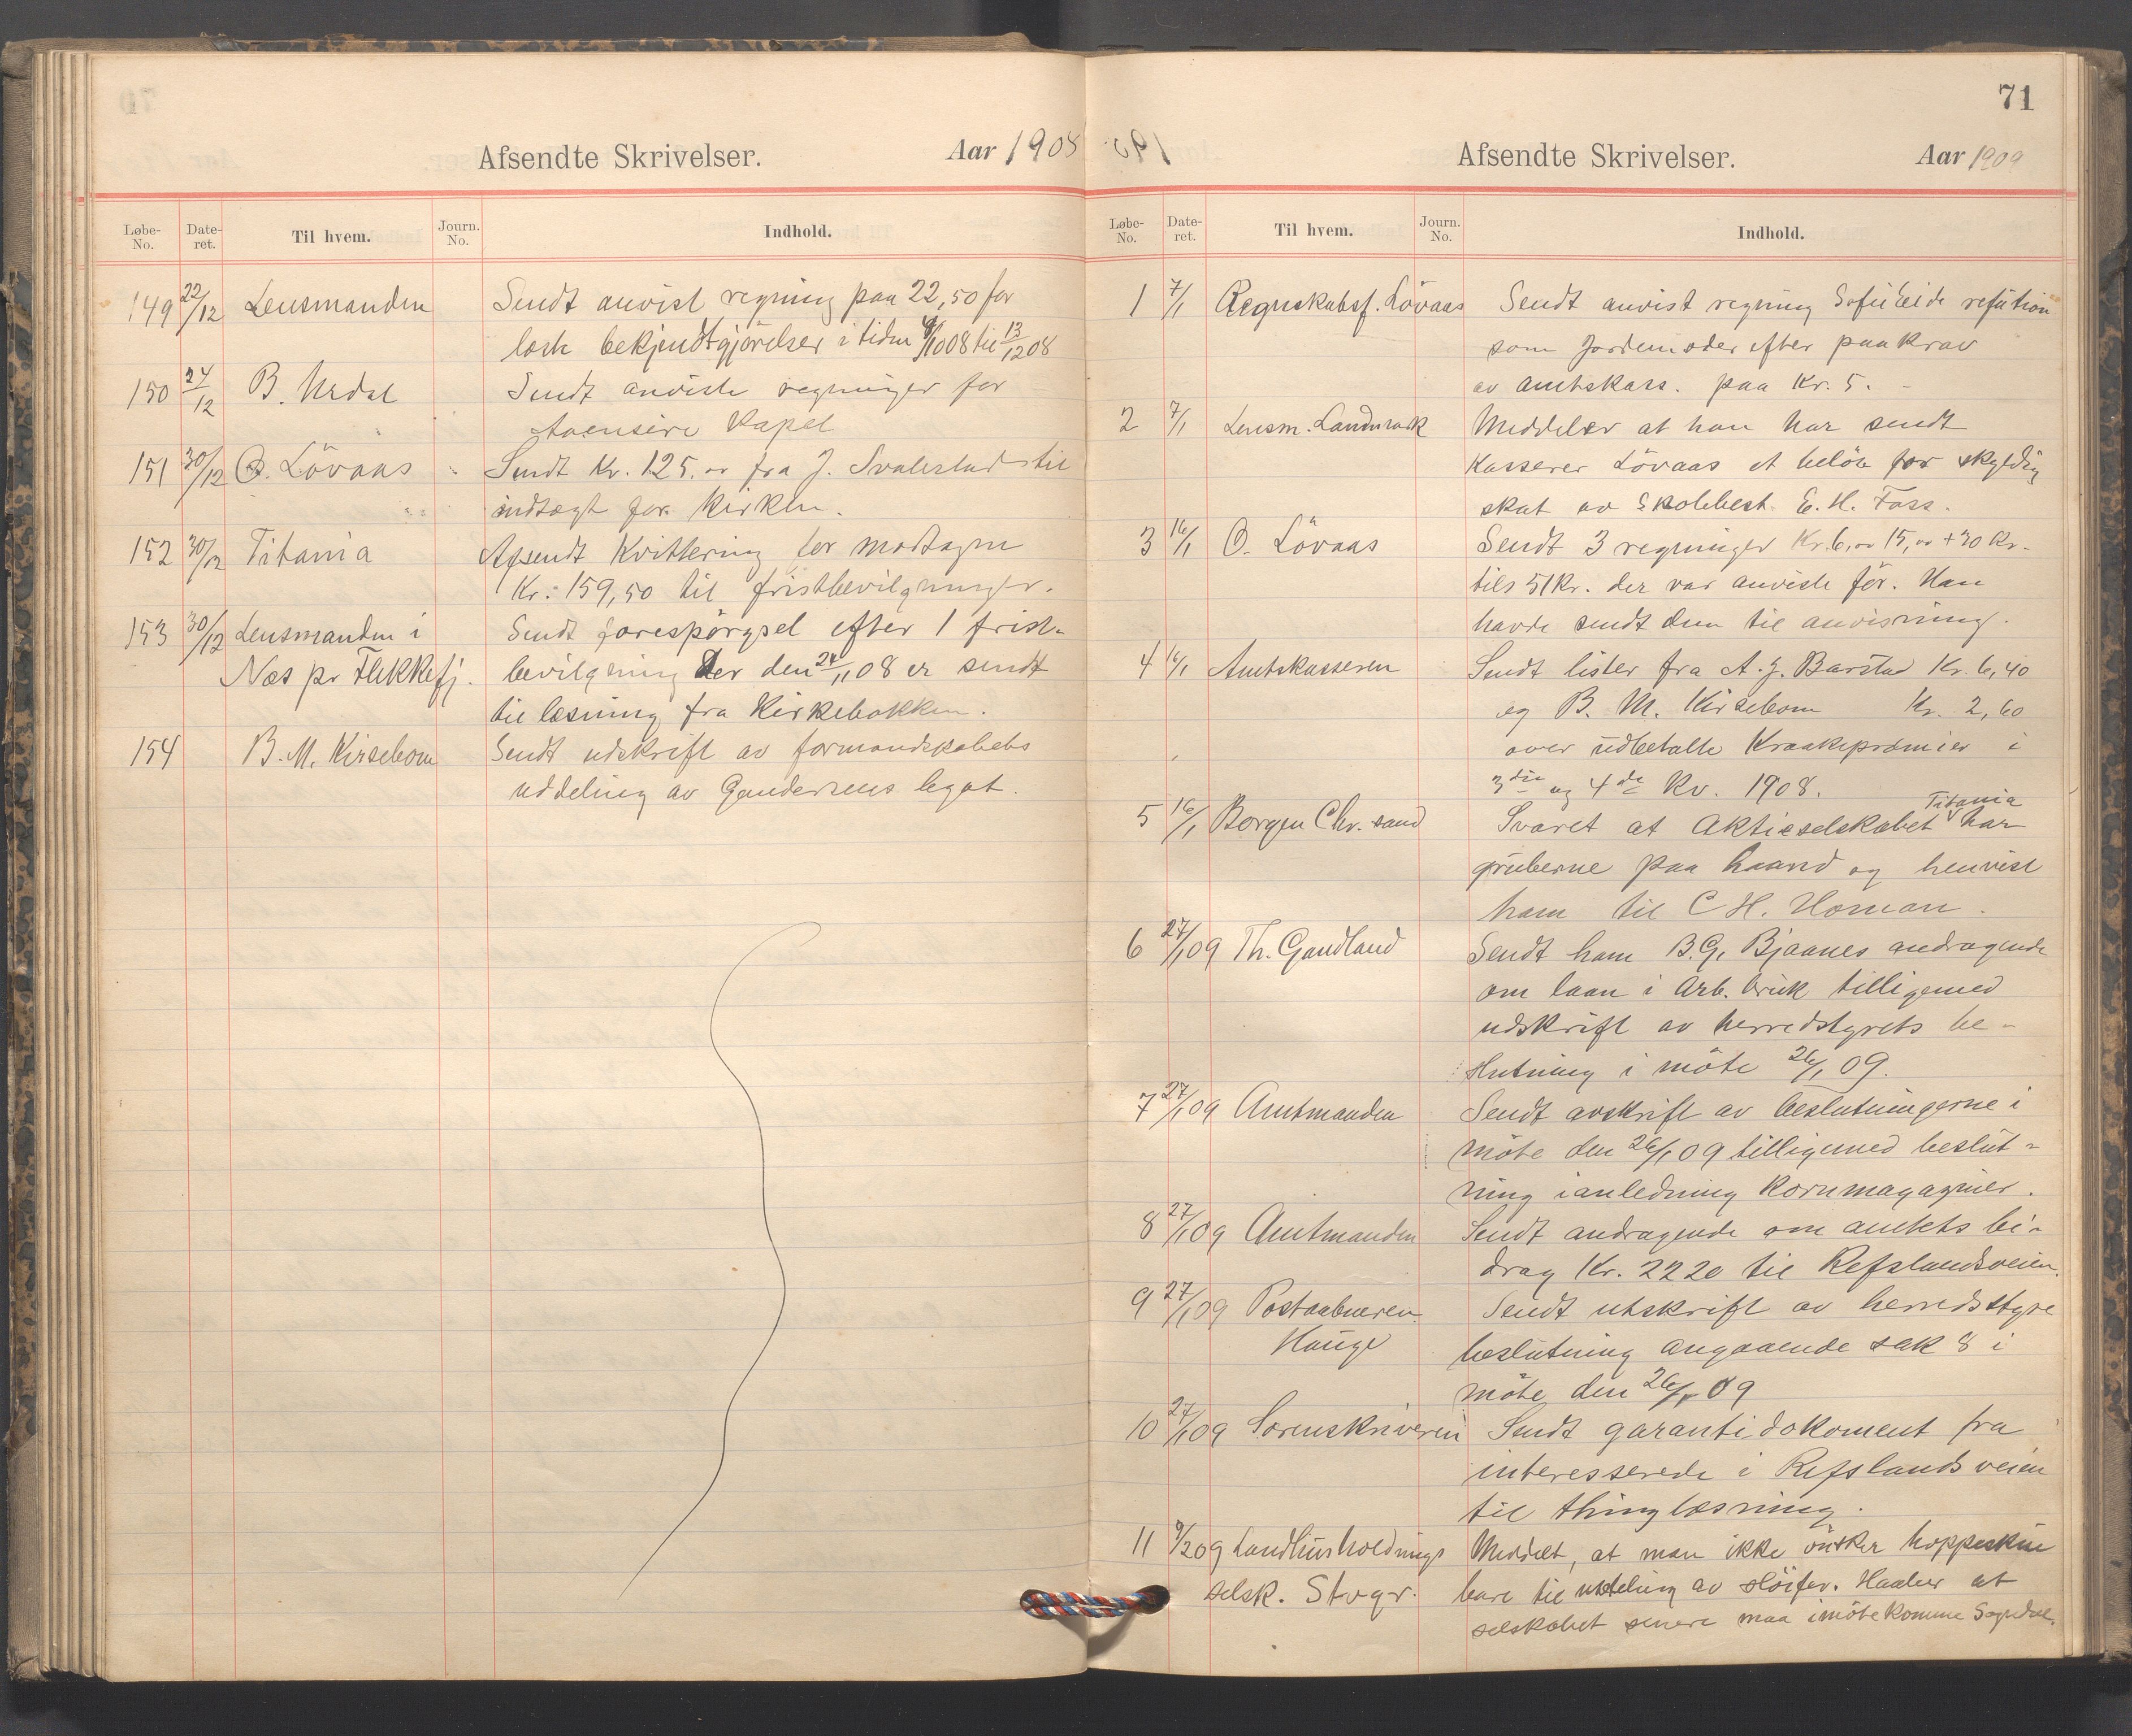 Afsendte Skrivelser. Aar 1908
Løbe-No. Date-ret. Til hvem. Journ. No. Indhold.
149 22/12 Lensmanden Sendt anvist regning paa 22,50 for
læste bekjendtgjørelser i tiden 08 til 13/12 08
150 24/12 B. Urdal Sendt anviste regninger for
Aaensire Kapel
151 30/12 O. Lövaas Sendt Kr. 125.oo fra J. Svalestad til
indtægt for Kirken.
152 30/12 Titania Afsendt Kvittering for modtagne
Kr: 159,50 til fristbevilgninger.
153 30/12 Lensmanden i Sendt forespörgsel efter 1 frist-
Næs pr Flekkefj. bevilgning der den 24/11 08 er sendt
til læsning fra Kirkebakken.
154 B. M. Kirsebom Sendt udskrift av formandskabets
uddeling av Gandersens legat.
71
Afsendte Skrivelser. Aar 1909
Løbe-No. Date-ret. Til hvem. Journ. No. Indhold.
1 7/1 Regnskabsf. Lövaas Sendt anvist regning Sofie Eide
som Jordemoder efter paakrav
av Amtskass. paa Kr. 5.-
2 7/1 Lensm. Landmark Meddeler at han har sendt
Kasserer Lövaas et belöb for skyldig
skat av Skolebest. E. H. Foss.
3 16/1 O. Lövaas Sendt 3 regninger Kr. 6,oo 15,oo + 30 Kr.
tils 51 Kr. der var anviste før. Han
havde sendt dem til anvisning.
4 16/1 Amtskasseren Sendt lister fra A. J. Barstad Kr. 6,40
og B. M. Kirsebom Kr. 2,60
over udbetalte Kraakepræmier i
3die og 4de Kv. 1908.
5 16/1 Borgen Chr.sand Svaret at Aktieselskabet Titania har
gruberne paa haand og henvist
ham til C H. Homan.
6 27/1 09 Th. Gandland Sendt ham B. G. Bjaanes andragende
om laan i Arb. bruk tilligemed
udskrift av herredstyrets be-
slutning i möte 26/1 09.
7 27/1 09 Amtmanden Sendt avskrift av beslutningerne i
möte den 26/1 09 tilligemed beslut-
ning ianledning Kornmagaziner.
8 27/1 09 Amtmanden Sendt andragende om amtets bi-
drag Kr. 2220 til Refslandsveien.
9 27/1 09 Postaabneren Sendt utskrift av herredsstyre
Hauge beslutning angaaende sak 8 i
möte den 26/1 09
10 27/1 09 Sorenskriveren Sendt garanti dokoment fra
interesserede i Refslandsveien
til thinglæsning.
11 9/2 09 Landhusholdnings Meddelt, at man ikke önsker
selsk. Stvgr. bare til utdeling av Haaber at
selskabet senere maa imötekomme Sogndal.